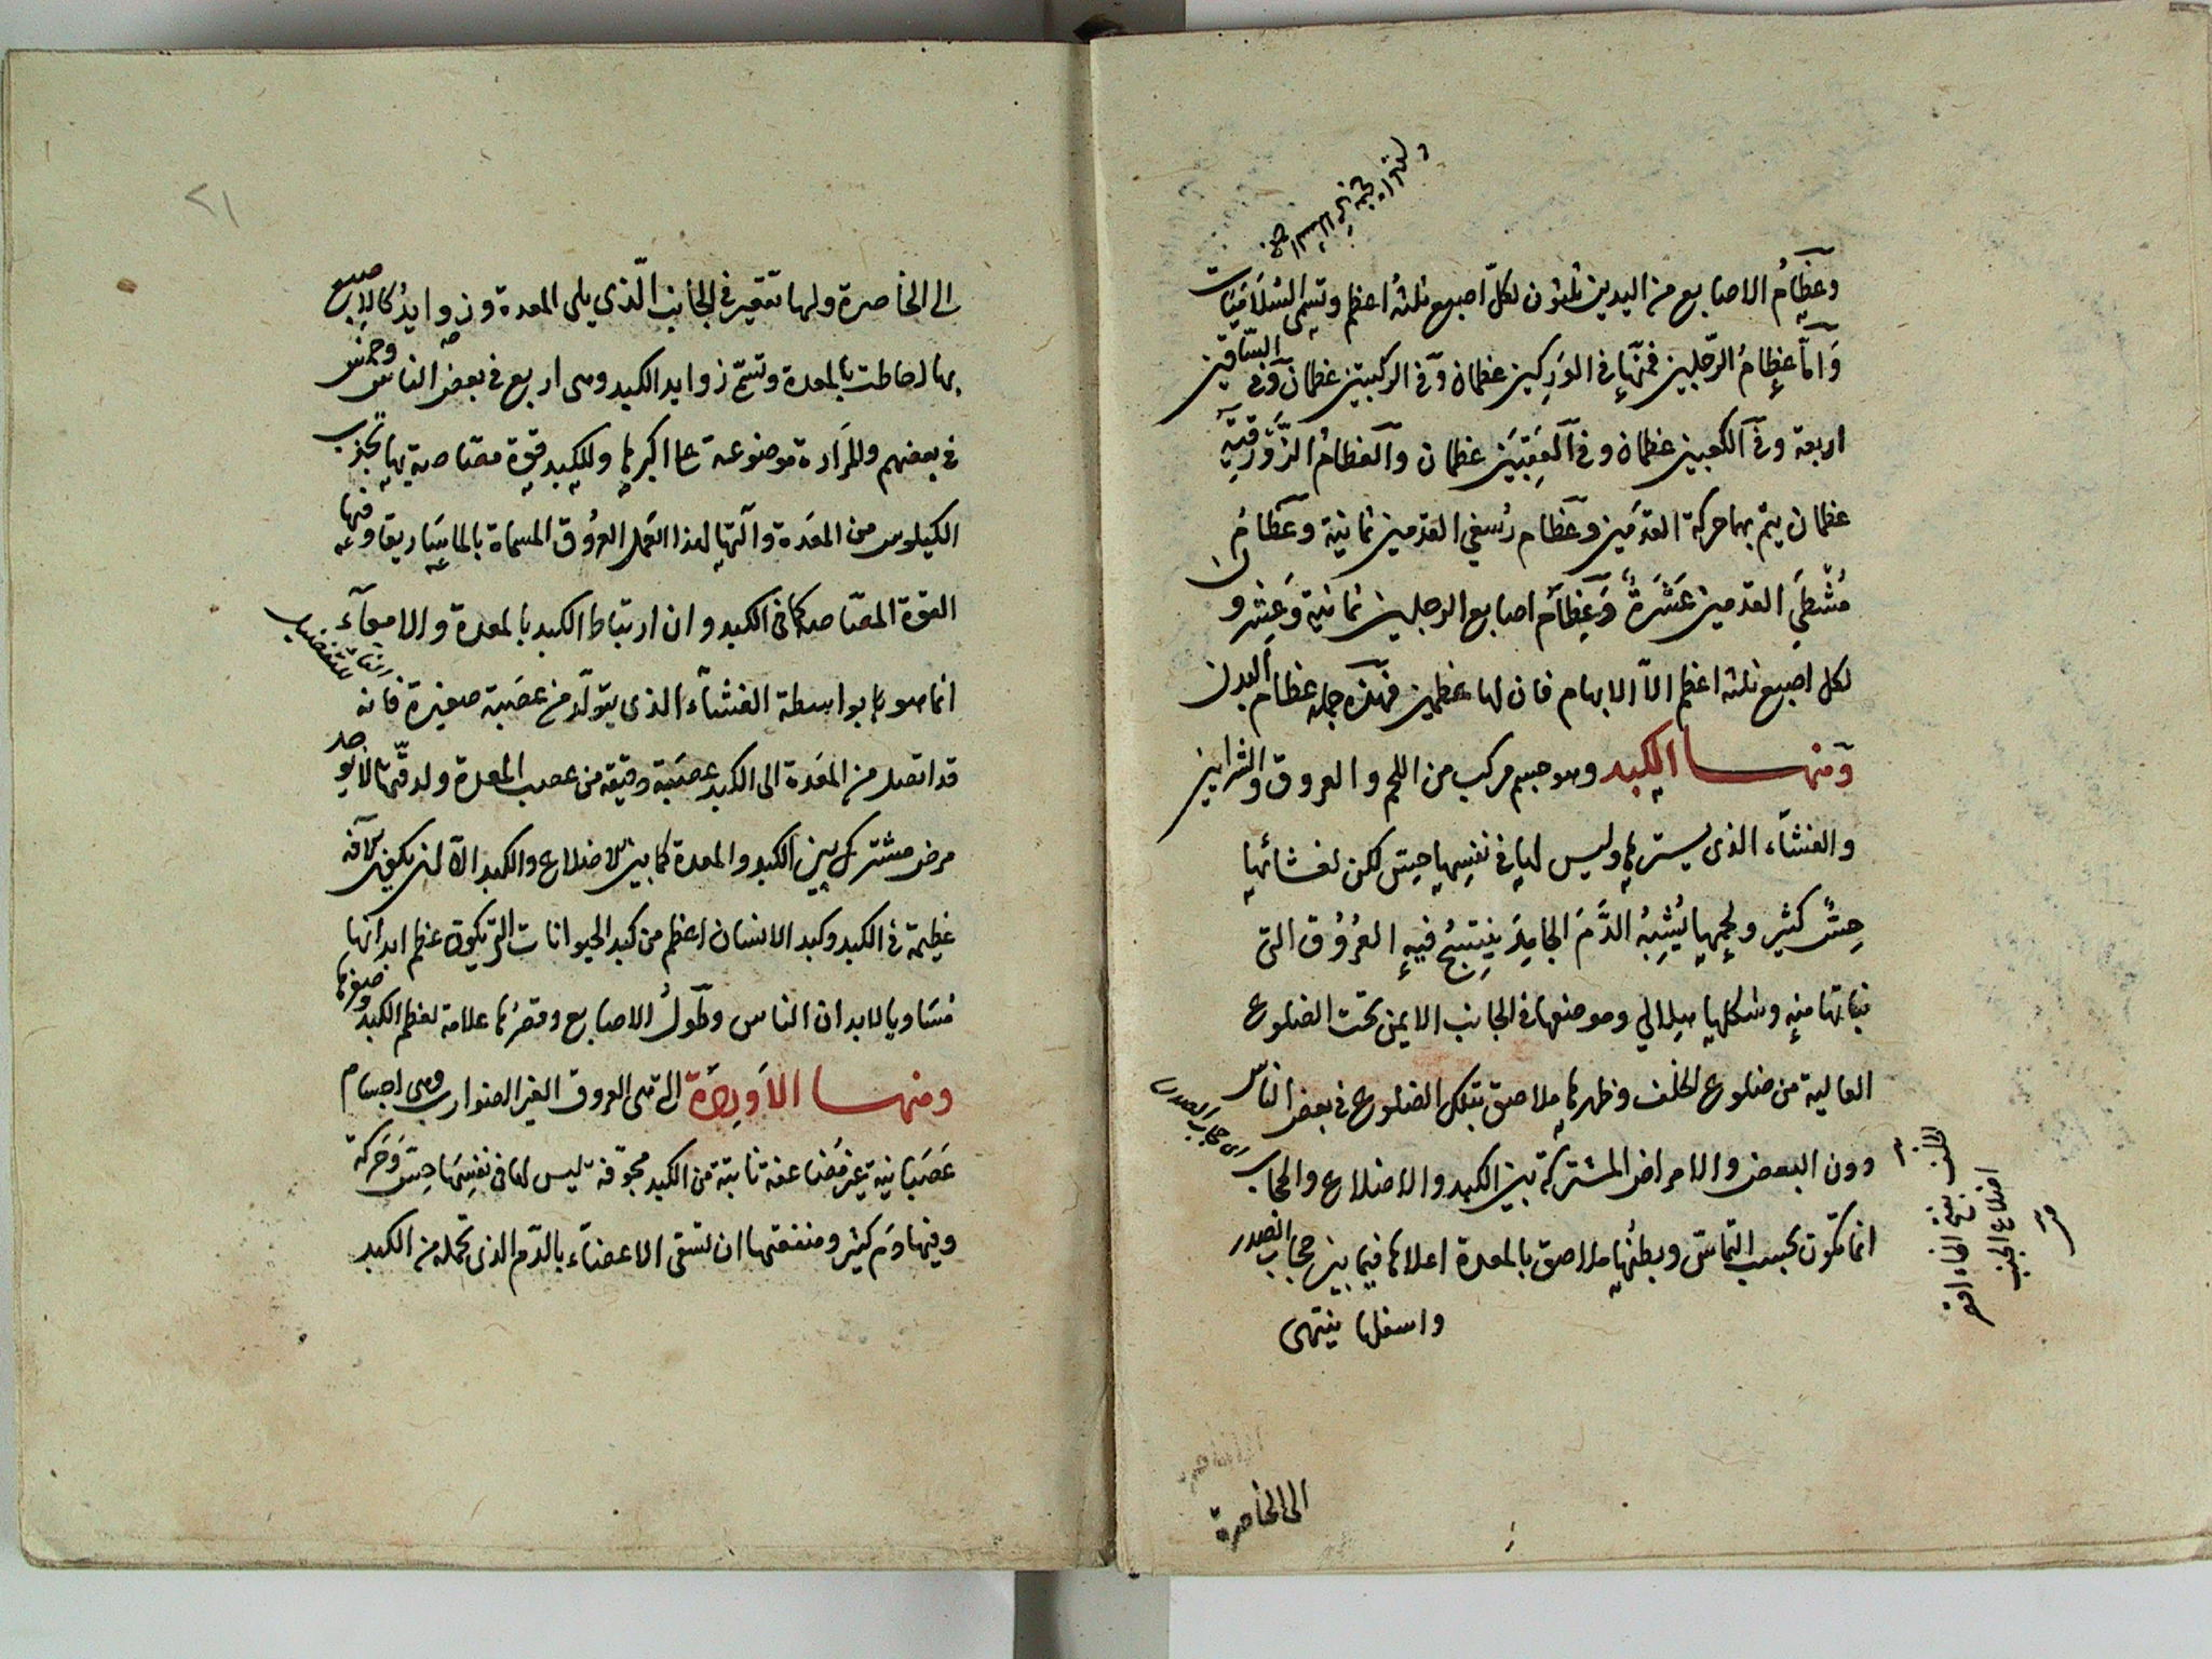 وعظام الاصابع من اليدين ثلثون لكلّ اصبع ثلثة اعظم وتسمى السُّلاَمَيَات
وَامّا عِظامُ الرّجلين فمنها فى الوَرِكين عظمان وَفى الركبتين عظمان وَفى الساقين
اربعة وفى الكعبين عظمان وفى العَقِبَيَن عظمان والعظامُ الزَّوْرَقيّة
عظمان يتم بهما حركة القدَمين وعظام رُسغي القدمين ثمانية وعظامُ
مُشْطَي القدمين عَشَرَةٌ وَعِظَام اصابع الرجلين ثمانية وَعشرون
لكل اصبع ثلثة اعظم الاّ الابهام فان لها عظمين فهذه جملة عظام البدن
ومنها الكبد وهو جسم مركب من اللحم والعروق والشرايين
والغشآء الذى يسترها وليس لها فى نفسِها حِسّ لكن لغشائها
حِسٌّ كثير ولحمها يُشْبِهُ الدَّمَ الجامِدَ يَنتسِجُ فيهِ العُرُوُق التى
نباتها منه وشكلها هلالي وموضعها فى الجانب الايمن تحت الضلوع
العالية من ضلوع الخلف وظهرها ملاصق بتلك الضلوع فى بعض الناس
دون البعض والامراض المشتركة بين الكبد والاضلاع والحجاب
اى حجاب الصدر
انما تكون بحسب التماسّ وبطنُها ملاصق بالمعدة اعلاها فيما بين حجاب الصدر
واسفلها ينتهى
اضلاع الجنب
الى الخاصرة
٢١
الى الخاصرة ولها تقعير فى الجانب الّذي يلى المعدة وزوايدُ كالاصبع
بها احاطت بالمعدة وتسمّ زوايد الكبد وهى اربع فى بعض الناس وخمس
فى بعضهم والمرَارة موضوعة على اكبرها وللكبد قوّة مصّاصة بها تجذب
الكيلوس من المعَدة وآلتها لهذا العَمل العرُوق المسماة بالماسَاريقا وفيها
القوة المصّاصة كما فى الكبد وان ارتباط الكبد بالمعدة والامعآء
انما هو بواسطة الغشآء الذى يتولّد من عصَبة صغيرة فانه
قد اتصل من المعَدة الى الكبد عصَبة دقيقة من عصب المعدة ولدقّتها لا يوجد
مرض مشترك بين الكبد والمعدة كما بين الاضلاع والكبد الاّ ان يكون لآفة
عظيمة فى الكبد وكبد الانسان اعظم من كبد الحيوانات التى يكون عظم ابدانها
مُسَاويا لابدان الناس وطُولُ الاصابع وقصرُها علامة لعظم الكبد وصغرها
ومنها الاَورِدَة التى هى العروق الغير الضوارب وهى اجسام
عَصَبَانية غير مُضاعفة نابتة من الكبد مجوّفة ليس لها فى نفسِهَا حِسّ وَحَركة
وفيها دَم كثير ومنفعتها ان تسقى الاعضاء بالدّم الذى تحمله من الكبد